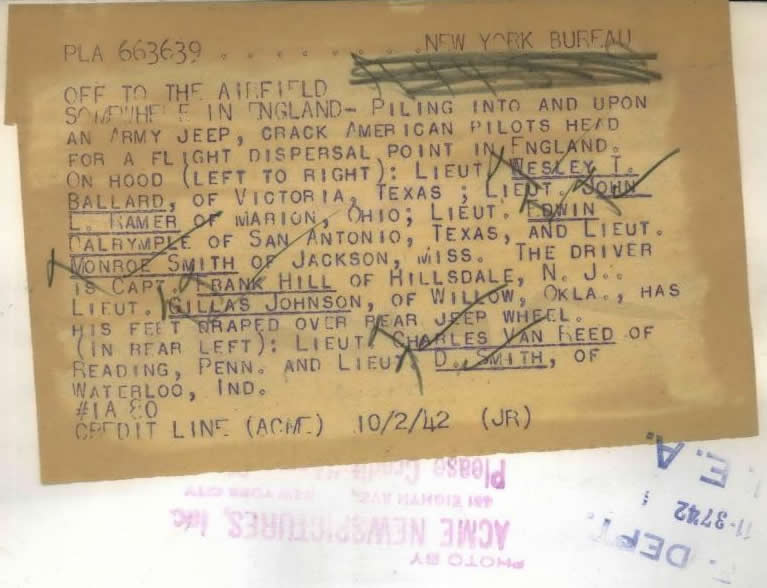 PLA 663639 . . . . . . . . . NEW YORK BUREAU
OFF TO THE AIRFIELD
SOMEWHERE IN ENGLAND- PILING INTO AND UPON
AN ARMY JEEP, CRACK AMERICAN PILOTS HEAD
FOR A FLIGHT DISPERSAL POINT IN ENGLAND.
ON HOOD (LEFT TO RIGHT): LIEUT. WESLEY T.
BALLARD, OF VICTORIA, TEXAS ; LIEUT. JOHN
L. RAMER OF MARION, OHIO; LIEUT. EDWIN
DALRYMPLE OF SAN ANTONIO, TEXAS, AND LIEUT.
MONROE SMITH OF JACKSON, MISS. THE DRIVER
IS CAPT. FRANK HILL OF HILLSDALE, N. J..
LIEUT. GILLAS JOHNSON, OF WILLOW, OKLA., HAS
HIS FEET DRAPED OVER REAR JEEP WHEEL.
(IN REAR LEFT): LIEUT. CHARLES VAN REED OF
READING, PENN. AND LIEUT. D. SMITH, OF
WATERLOO, IND.
#1A 80
CREDIT LINE (ACME) 10/2/42 (JR)
PHOTO BY
ACME NEWSPICTURES, Inc.
461 EIGHTH AVE., NEW YORK CITY
Please Credit
DEPT.
11-3742
E. A.